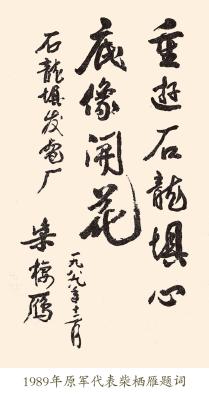 重遊石龍埧心
底像開花
石龍埧发電厂
一九八九年十二月
柴棲雁
1989年原军代表柴栖雁题词